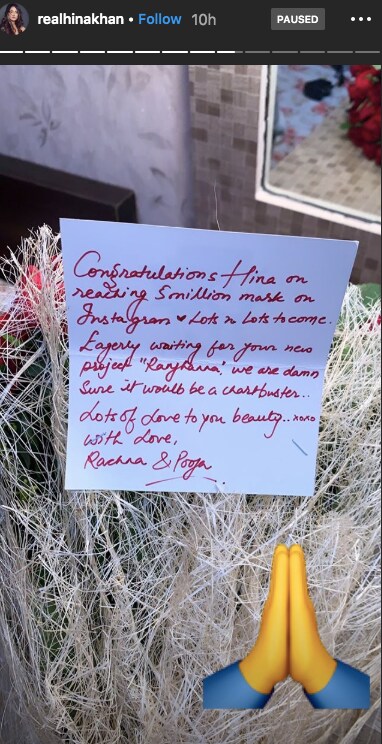 realhinakhan • Follow 10h PAUSED
Congratulations Hina on
reaching 5 million mark on
Instagram ♥ Lots n Lots to come.
Eagerly waiting for your new
project "Ranjhanna", we are damn
Sure it would be a chartbuster..
Lots of Love to you beauty.. xoxo
with Love,
Rachna & Pooja